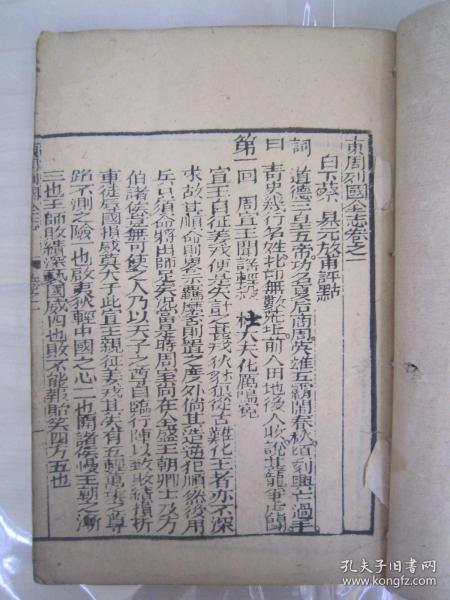 東周列國全志卷之一
白下蔡 昇元放甫評點
詞 道德三皇五帝功名夏后商周英雄五霸鬧春秋頃刻興亡過手
曰 青史幾行名姓北邙無數荒坵前人田地後人收說甚龍爭虎鬬
第一回 周宣王聞謠輕殺 杜大夫化厲鳴冤
宣王自征姜戎便是失計之甚戎狄豺狼從古難化王者亦不深
求故其順命則畧示羈縻否則置之度外倘其造逆犯順然後用
兵只須命將出師足矣況當是時周室尚在全盛王朝卿士及方
伯諸侯豈無可使之人乃以天子之尊自臨行陣以致敗績損折
車徒辱國損威莫大于此宣王親征姜戎其失有五輕萬乘之尊
蹈不測之險一也啟夷狄輕中國之心二也開諸侯慢王朝之漸
三也王師敗績深虧國威四也敗不能報貽笑四方五也
東周列國全志 卷之一
孔夫子旧书网